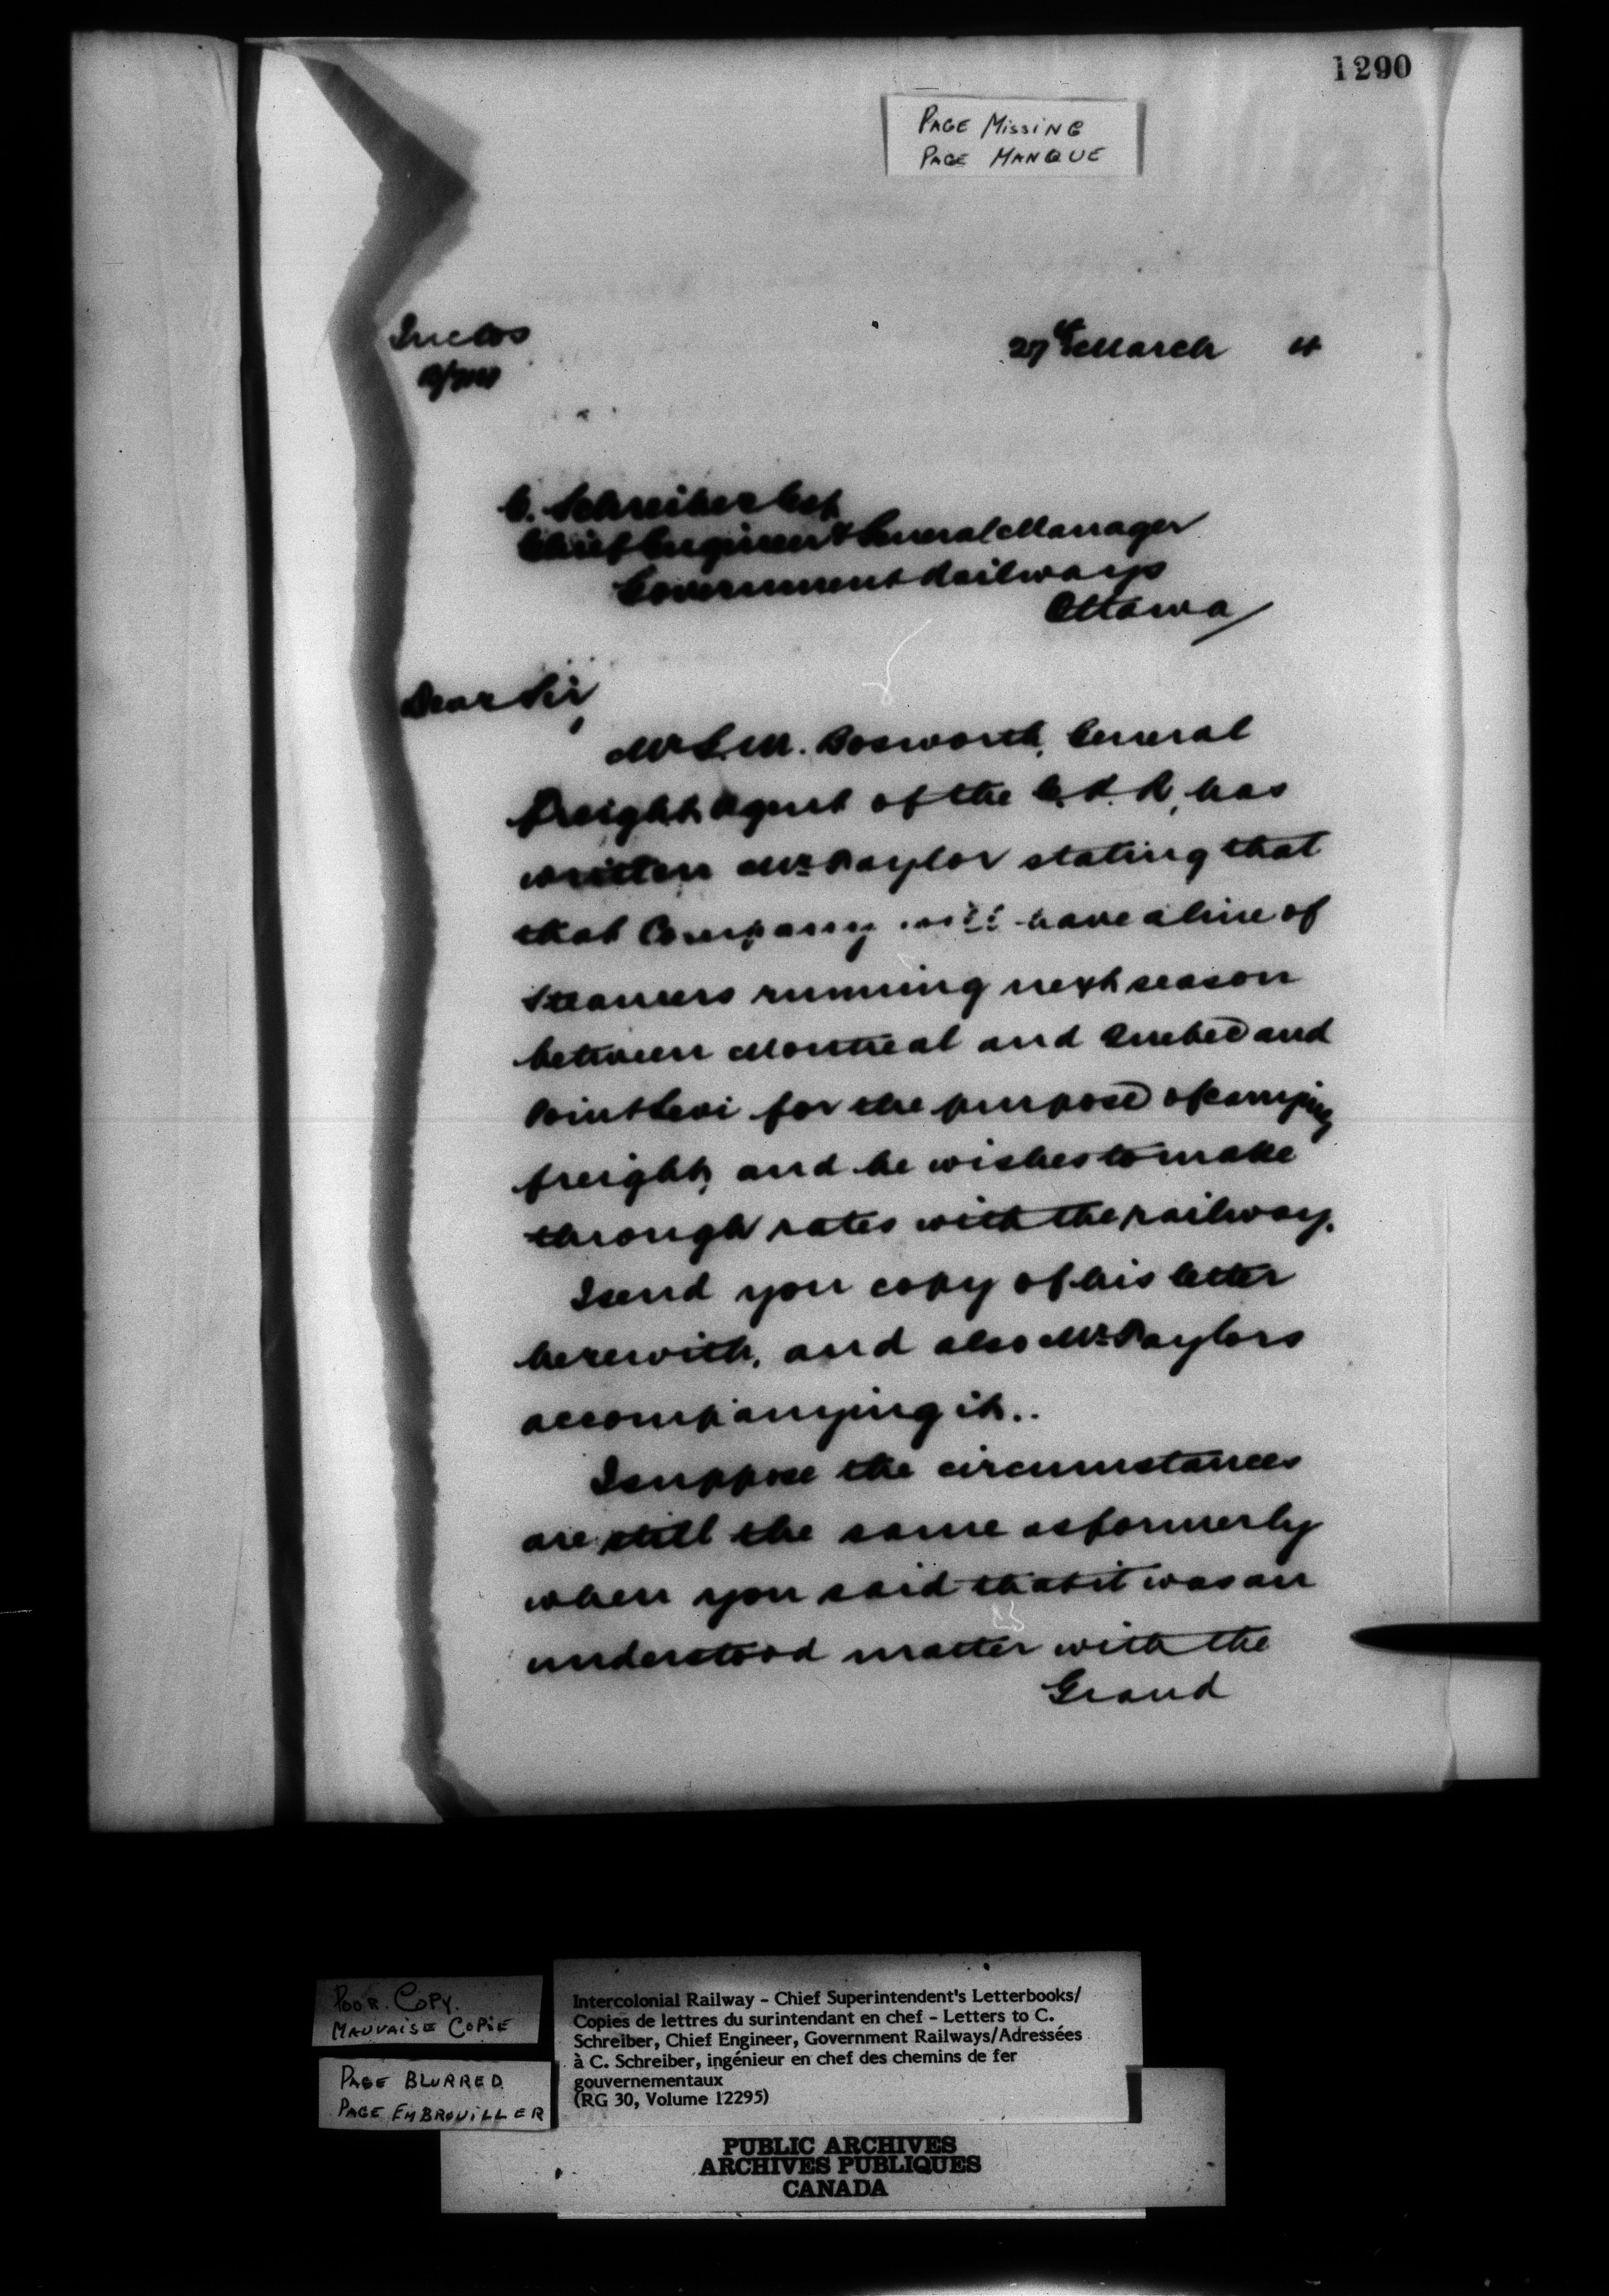 1290
PAGE MISSING
PAGE MANQUE
Inclos
27th March 4
C. Schreiber Esq
Chief Engineer & General Manager
Government Railways
Ottawa
Dear Sir,
Mr. M. Bosworth, General
Freight Agent of the C. P. R, has
written Mr Taylor stating that
that Company will have a line of
Steamers running next season
between Montreal and Quebec and
Point Levi for the purpose of carrying
freight, and he wishes to make
through rates with the railway.
I send you copy of his letter
herewith, and also Mr Taylors
accompanying it..
I suppose the circumstances
are still the same as formerly
when you said that it was an
understood matter with the
Grand
POOR. COPY.
MAUVAISE COPIE
PAGE BLURRED.
PAGE EMBROUILLER
Intercolonial Railway - Chief Superintendent's Letterbooks/
Copies de lettres du surintendant en chef - Letters to C.
Schreiber, Chief Engineer, Government Railways/Adressées
à C. Schreiber, ingénieur en chef des chemins de fer
gouvernementaux
(RG 30, Volume 12295)
PUBLIC ARCHIVES
ARCHIVES PUBLIQUES
CANADA